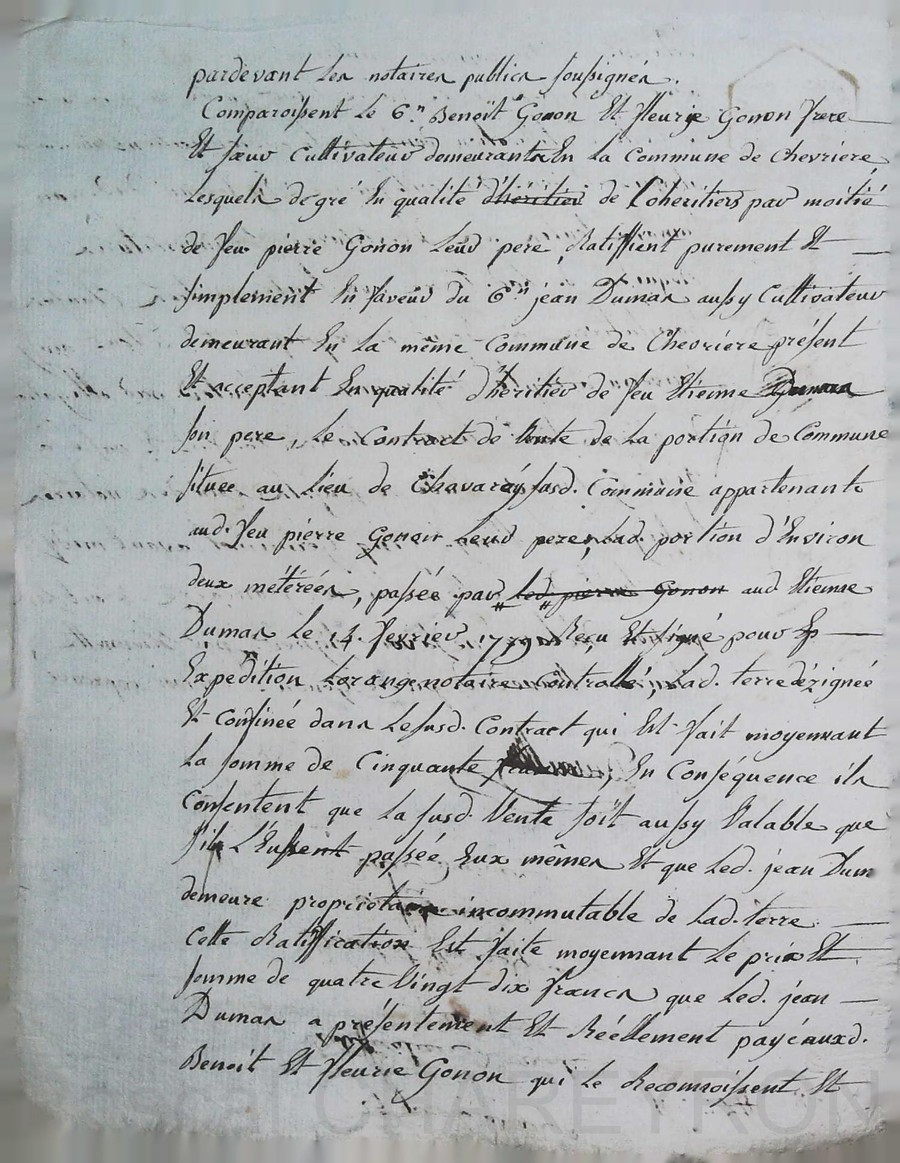 pardevant les notaires publics soussignés.
Comparoissent le C.ⁿ Benoît Gonon Et fleurie Gonon frere
Et sœur Cultivateur demeurants En la Commune de Chevriere
Lesquels de gré En qualité d'héritier de Coheritiers par moitié
de feu pierre Gonon Leur pere, Ratiffient purement Et
simplement En faveur du C.ⁿ jean Dumas aussy Cultivateur
demeurant En La même Commune de Chevriere présent
Et acceptant En qualité d'héritier de feu Etienne Dumas
son pere, Le Contract de Vente de La portion de Commune
située au Lieu de Chavaray susd. Commune appartenante
aud. feu pierre Gonon Leur pere, Lad. portion d'Environ
deux métérées, passée par Led. pierre Gonon aud Etienne
Dumas Le 14. fevrier Recu Et signé pour
Expedition Lorange notaire Controllé, Lad. terre dézignée
Et confinée dans Le susd. Contract qui Est fait moyennant
La somme de Cinquante, En Conséquence ils
Consentent que La susd. Vente soit aussy Valable que
s'ils L'Eussent passée Eux mêmes Et que Led. jean Dum
demeure proprietaire incommutable de Lad. terre
Cette Ratiffication Est faite moyennant Le prix Et
somme de quatre Vingt dix francs que Led. jean
Dumas a présentement Et Réellement payé auxd.
Benoit Et fleurie Gonon qui Le Reconnoissent Et
CHAREYRON